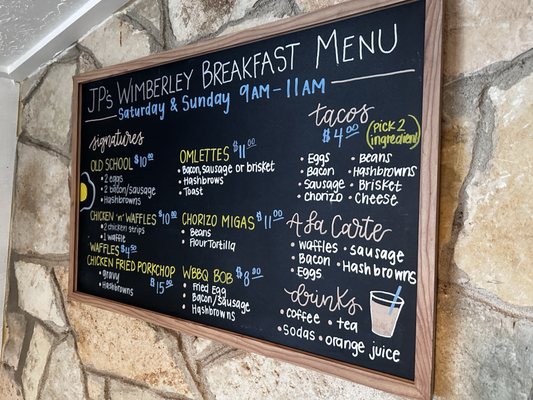 JP's Wimberley Breakfast Menu
Saturday & Sunday 9AM-11AM
signatures
OLD SCHOOL $10.00
• 2 eggs
• 2 bacon/sausage
• Hashbrowns
CHICKEN 'n' WAFFLES $10.00
• 2 chicken strips
• 1 waffle
WAFFLES $4.50
CHICKEN FRIED PORKCHOP $15.50
• gravy
• Hashbrowns
OMLETTES $11.00
• Bacon, sausage or brisket
• Hashbrowns
• Toast
CHORIZO MIGAS $11.00
• Beans
• Flour Tortilla
WBBQ BOB $8.00
• Fried egg
• Bacon/Sausage
• Hashbrowns
tacos
$4.00 (Pick 2 ingredients)
• Eggs • Beans
• Bacon • Hashbrowns
• Sausage • Brisket
• chorizo • Cheese
A la Carte
• Waffles • Sausage
• Bacon • Hashbrowns
• Eggs
drinks
• coffee • tea
• sodas • orange juice